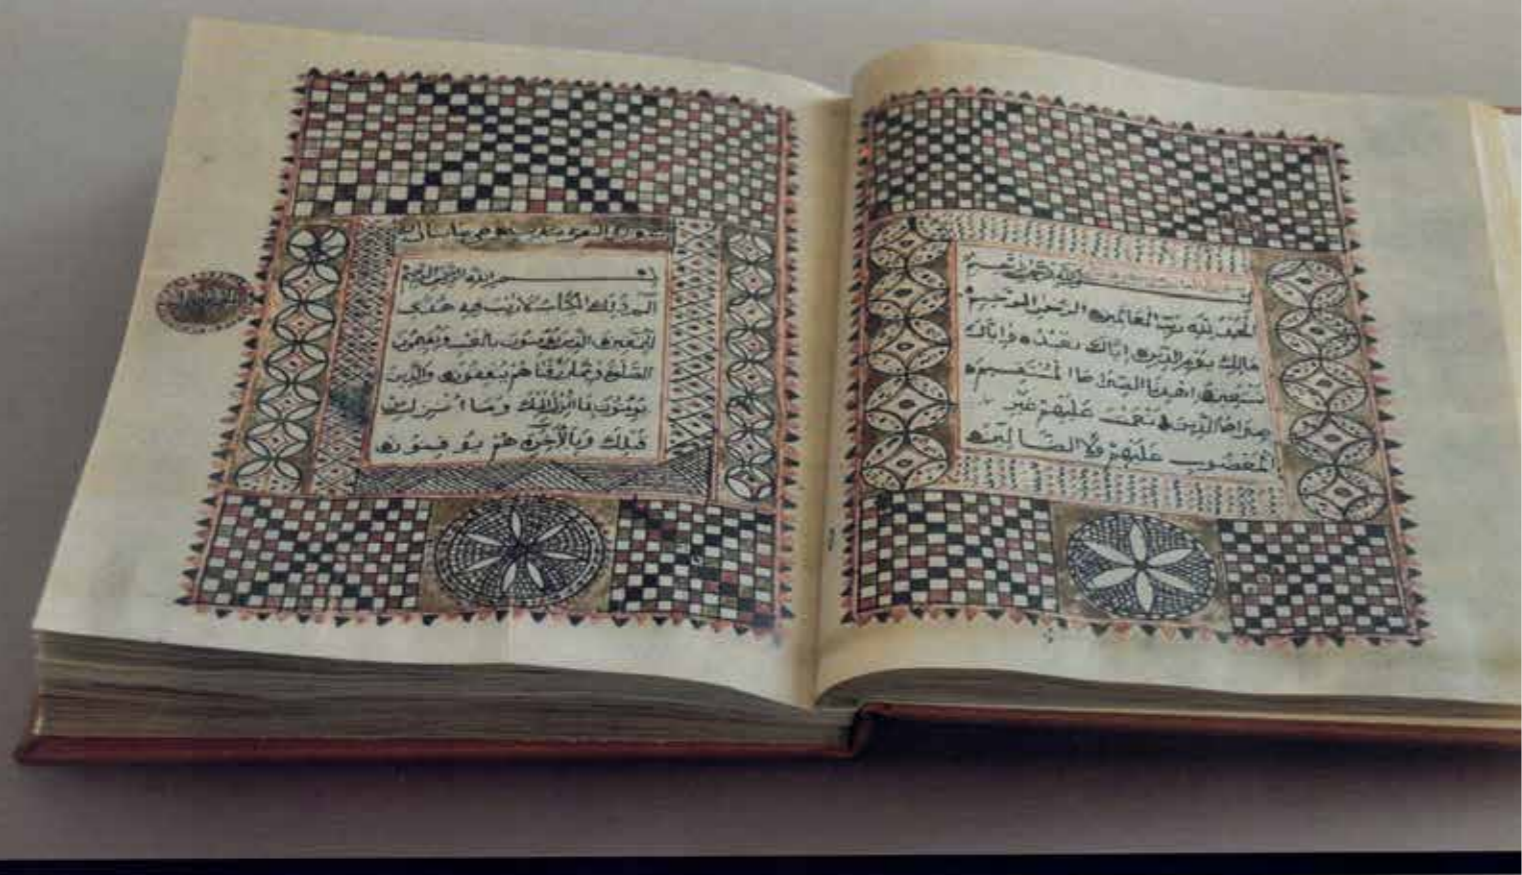 بسم الله الرحمن الرحيم
الحمد لله رب العالمين الرحمن الرحيم
مالك يوم الدين إياك نعبد وإياك
نستعين اهدنا الصراط المستقيم
صراط الذين أنعمت عليهم غير
المغضوب عليهم ولا الضالين
سورة البقرة
بسم الله الرحمن الرحيم
الم ذلك الكتاب لا ريب فيه هدى
للمتقين الذين يؤمنون بالغيب ويقيمون
الصلاة ومما رزقناهم ينفقون والذين
يؤمنون بما أنزل إليك وما أنزل من
قبلك وبالآخرة هم يوقنون